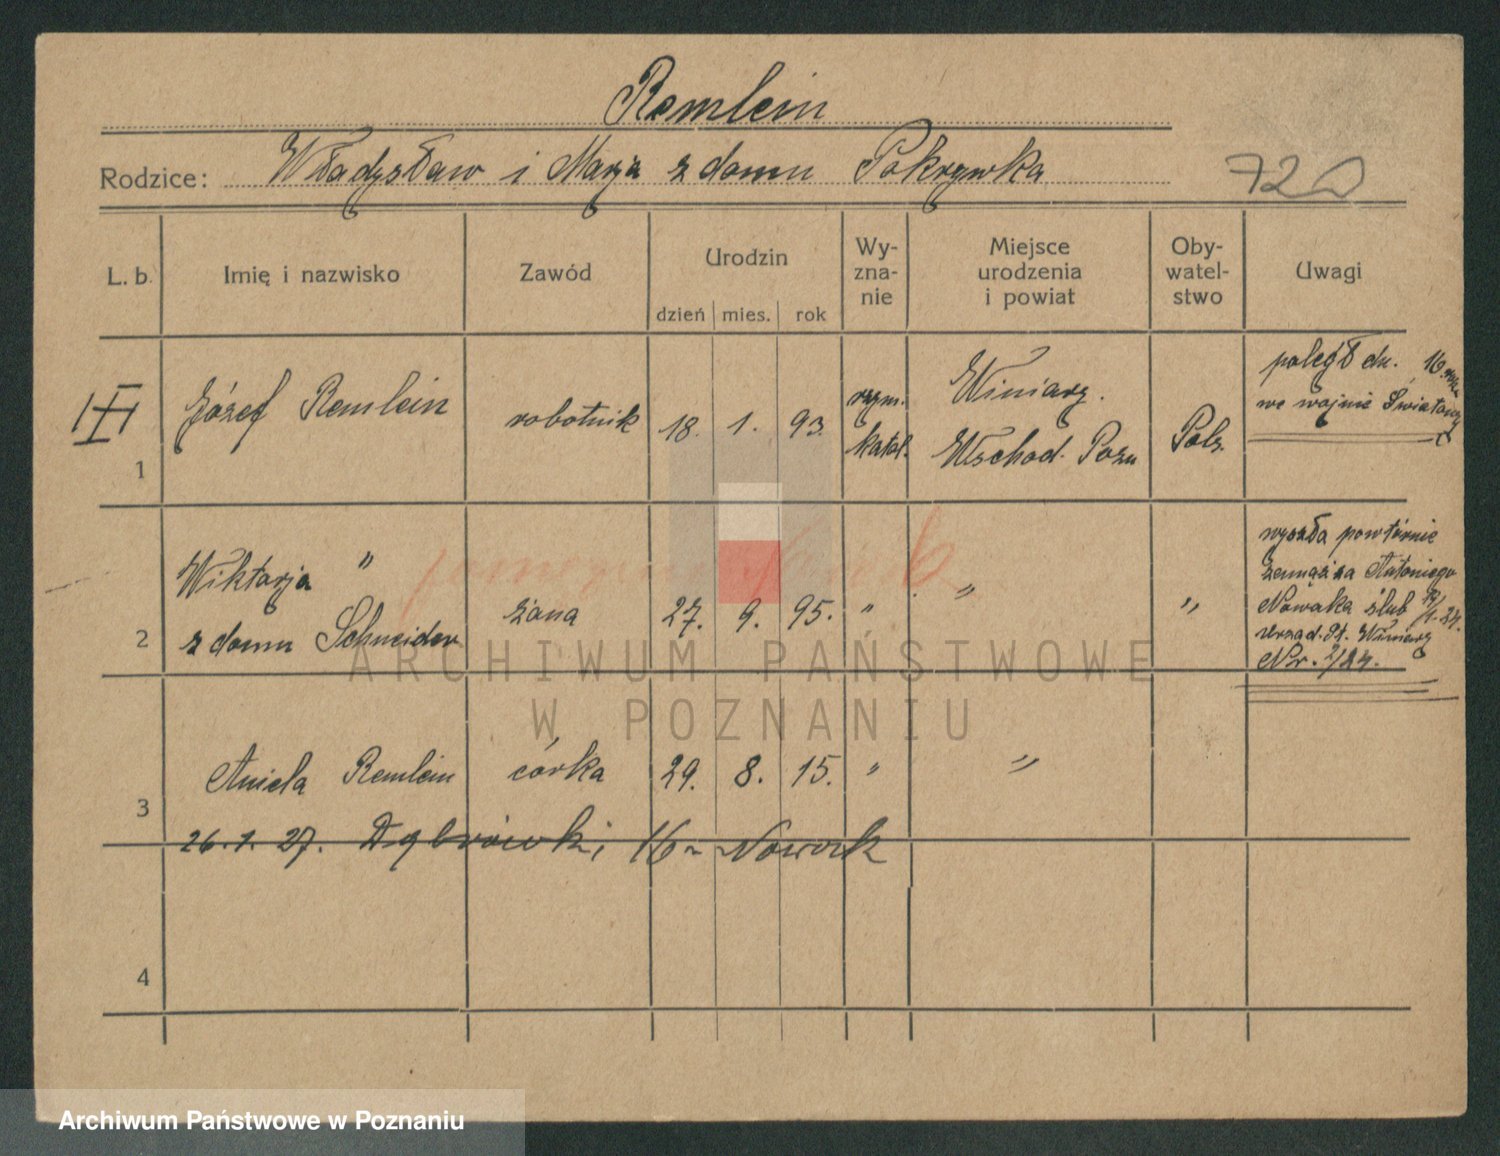 Remlein
Rodzice: Władysław i Marja z domu Pokrzywka
720
L. b.
Imię i nazwisko
Zawód
Urodzin
dzień mies. rok
Wy-
zna-
nie
Miejsce
urodzenia
i powiat
Oby-
watel-
stwo
Uwagi
1
Józef Remlein
robotnik
18. 1. 93.
rzym.
katol.
Winiary.
Wschod. Pozn
Pols.
poległ dn. 16.
we wojnie Światowej
2
Wiktorja "
z domu Schneider
żona
27. 9. 95.
"
"
"
wyszła powtórnie
zamąż za Antoniego
Nowaka ślub
Urząd. St. Winiary
Nr. 2/24.
3
Aniela Remlein
córka
29. 8. 15.
"
"
26. 1. 27. Dąbrówki 16 - Nowak
4
ARCHIWUM PAŃSTWOWE
W POZNANIU
Archiwum Państwowe w Poznaniu